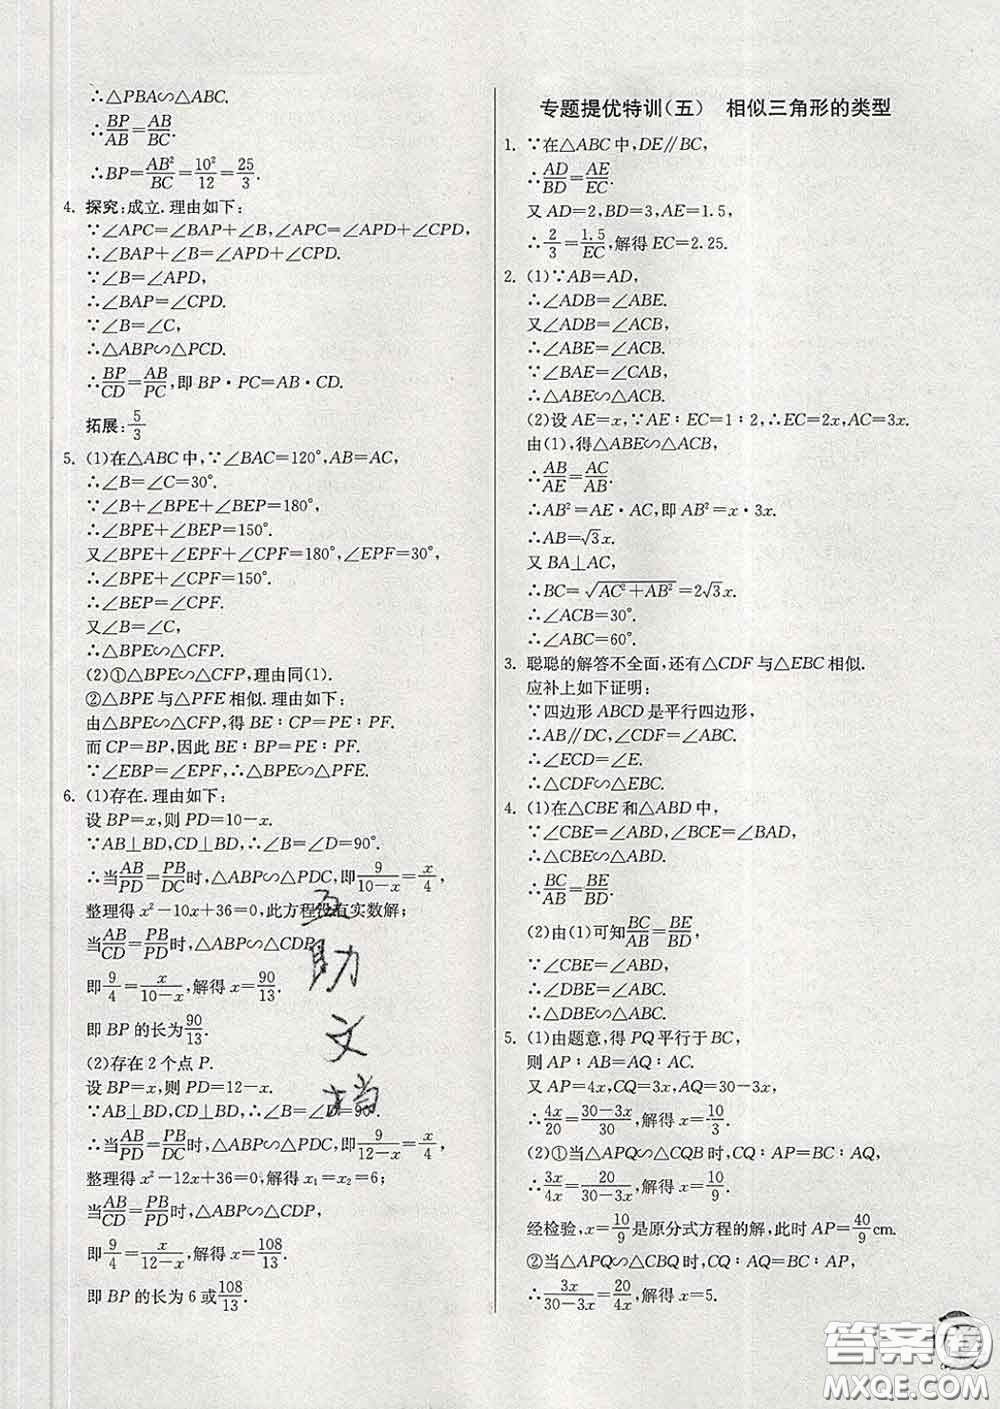 ∴△PBA∽△ABC.
∴BP/AB=AB/BC.
∴BP=AB²/BC=10²/12=25/3.
4. 探究:成立.理由如下:
∵∠APC=∠BAP+∠B,∠APC=∠APD+∠CPD,
∴∠BAP+∠B=∠APD+∠CPD.
∵∠B=∠APD,
∴∠BAP=∠CPD.
∵∠B=∠C,
∴△ABP∽△PCD.
∴BP/CD=AB/PC,即 BP·PC=AB·CD.
拓展:5/3
5. (1)在△ABC 中,∵∠BAC=120°,AB=AC,
∴∠B=∠C=30°.
∵∠B+∠BPE+∠BEP=180°,
∴∠BPE+∠BEP=150°.
又∠BPE+∠EPF+∠CPF=180°,∠EPF=30°,
∴∠BPE+∠CPF=150°.
∴∠BEP=∠CPF.
又∠B=∠C,
∴△BPE∽△CFP.
(2)①△BPE∽△CFP,理由同(1).
②△BPE 与△PFE 相似.理由如下:
由△BPE∽△CFP,得 BE∶CP=PE∶PF.
而 CP=BP,因此 BE∶BP=PE∶PF.
∵∠EBP=∠EPF,∴△BPE∽△PFE.
6. (1)存在.理由如下:
设 BP=x,则 PD=10-x.
∵AB⊥BD,CD⊥BD,∴∠B=∠D=90°.
∴当AB/PD=PB/DC时,△ABP∽△PDC,即9/(10-x)=x/4,
整理得 x²-10x+36=0,此方程没有实数解;
当AB/CD=PB/PD时,△ABP∽△CDP,
即9/4=x/(10-x),解得 x=90/13.
即 BP 的长为90/13.
(2)存在 2 个点 P.
设 BP=x,则 PD=12-x.
∵AB⊥BD,CD⊥BD,∴∠B=∠D=90°.
∴当AB/PD=PB/DC时,△ABP∽△PDC,即9/(12-x)=x/4,
整理得 x²-12x+36=0,解得 x₁=x₂=6;
当AB/CD=PB/PD时,△ABP∽△CDP,
即9/4=x/(12-x),解得 x=108/13.
即 BP 的长为 6 或108/13.
互
助
文
档
专题提优特训(五) 相似三角形的类型
1. ∵在△ABC 中,DE∥BC,
∴AD/BD=AE/EC.
又 AD=2,BD=3,AE=1.5,
∴2/3=1.5/EC,解得 EC=2.25.
2. (1)∵AB=AD,
∴∠ADB=∠ABE.
又∠ADB=∠ACB,
∴∠ABE=∠ACB.
∵∠BAE=∠CAB,
∴△ABE∽△ACB.
(2)设 AE=x,∵AE∶EC=1∶2,∴EC=2x,AC=3x.
由(1),得△ABE∽△ACB,
∴AB/AE=AC/AB.
∴AB²=AE·AC,即 AB²=x·3x.
∴AB=√3x.
又 BA⊥AC,
∴BC=√(AC²+AB²)=2√3x.
∴∠ACB=30°.
∴∠ABC=60°.
3. 聪聪的解答不全面,还有△CDF 与△EBC 相似.
应补上如下证明:
∵四边形 ABCD 是平行四边形,
∴AB∥DC,∠CDF=∠ABC.
∴∠ECD=∠E.
∴△CDF∽△EBC.
4. (1)在△CBE 和△ABD 中,
∵∠CBE=∠ABD,∠BCE=∠BAD,
∴△CBE∽△ABD.
∴BC/AB=BE/BD.
(2)由(1)可知BC/AB=BE/BD,
∵∠CBE=∠ABD,
∴∠DBE=∠ABC.
∴△DBE∽△ABC.
5. (1)由题意,得 PQ 平行于 BC,
则 AP∶AB=AQ∶AC.
又 AP=4x,CQ=3x,AQ=30-3x,
∴4x/20=(30-3x)/30,解得 x=10/3.
(2)①当△APQ∽△CQB 时,CQ∶AP=BC∶AQ,
∴3x/4x=20/(30-3x),解得 x=10/9.
经检验,x=10/9是原分式方程的解,此时 AP=40/9cm.
②当△APQ∽△CBQ 时,CQ∶AQ=BC∶AP,
∴3x/(30-3x)=20/4x,解得 x=5.
答案圈
MXQE.COM